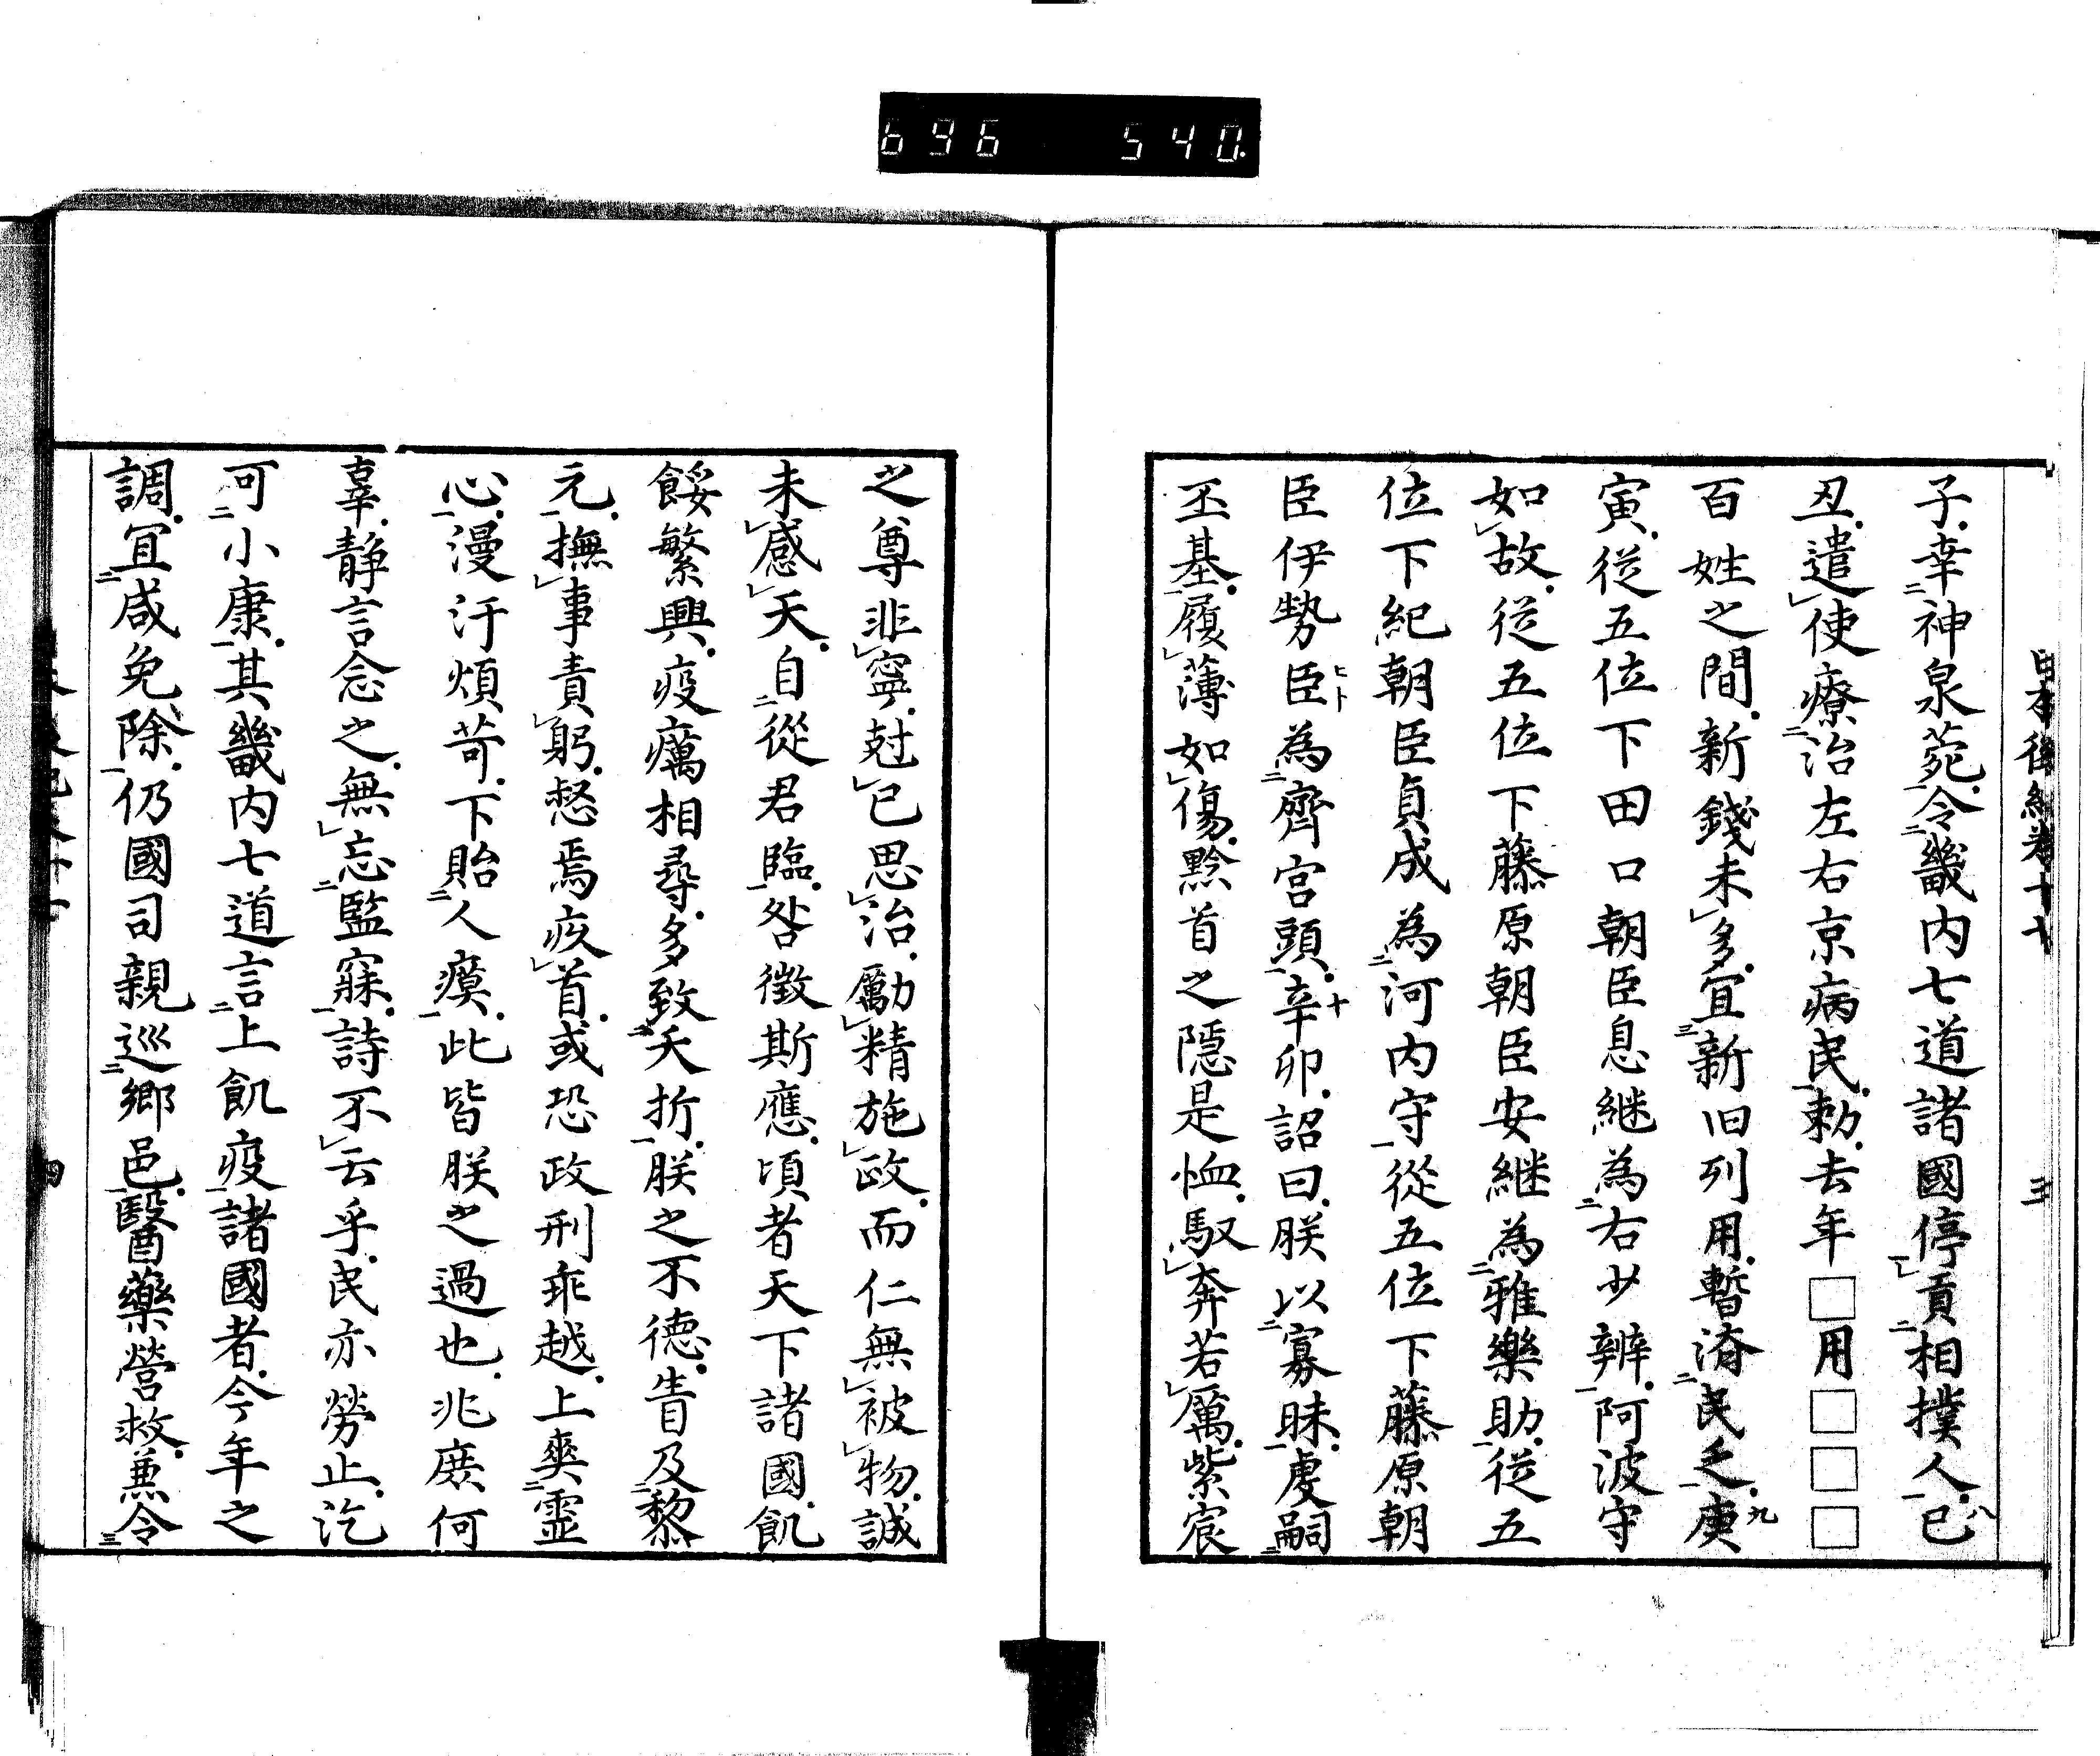 696 540
日本後紀卷十七 三
子幸神泉苑令畿内七道諸國停貢相撲人己
丑遣使療治左右京病民勅去年□用□□□
百姓之間新錢未多宜新旧列用暫済民乏庚
寅從五位下田口朝臣息継為右少辨阿波守
如故從五位下藤原朝臣安継為雅樂助從五
位下紀朝臣貞成為河内守從五位下藤原朝
臣伊勢臣為齊宮頭辛卯詔曰朕以寡昧虔嗣
丕基履薄如傷黔首之隱是恤馭奔若厲紫宸
之尊非寧尅已思治勵精施政而仁無被物誠
未感天自從君臨咎徵斯應頃者天下諸國飢
餒繁興疫癘相尋多致夭折朕之不德眚及黎
元撫事責躬怒焉疚首或恐政刑乖越上爽靈
心漫汗煩苛下貽人瘼此皆朕之過也兆庶何
辜静言念之無忘監寐詩不云乎民亦勞止汔
可小康其畿内七道言上飢疫諸國者今年之
調宜咸免除仍國司親巡郷邑醫藥營救兼令